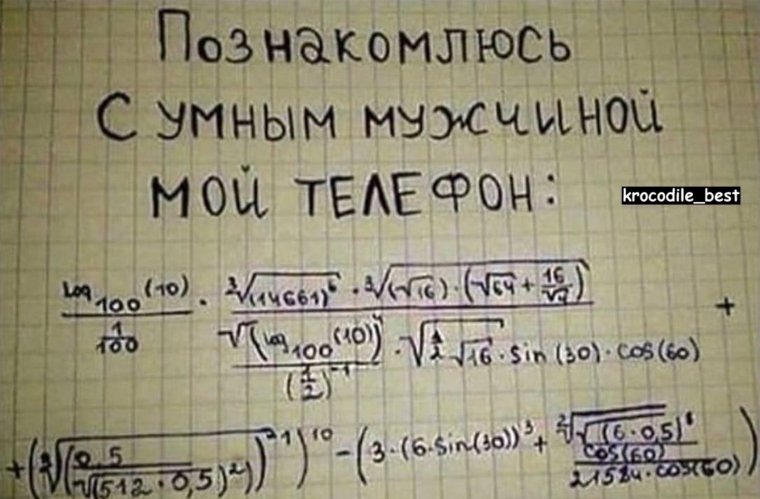 Познакомлюсь
с умным мужчиной
мой телефон:
krocodile_best
log₁₀₀(10) / (1/100) · ∛(14661)⁶ · ∛((√16)·(√64 + 16/√ +
√(log₁₀₀(10))⁴ / (1/2)⁻¹ · √ √16 · sin(30) · cos(60)
+ 0,5 / √(512 · 0,5)²))¹⁰ − (3·(6·sin(30))³ + √(6·0,5) / cos(60) / 21584·cos(60))